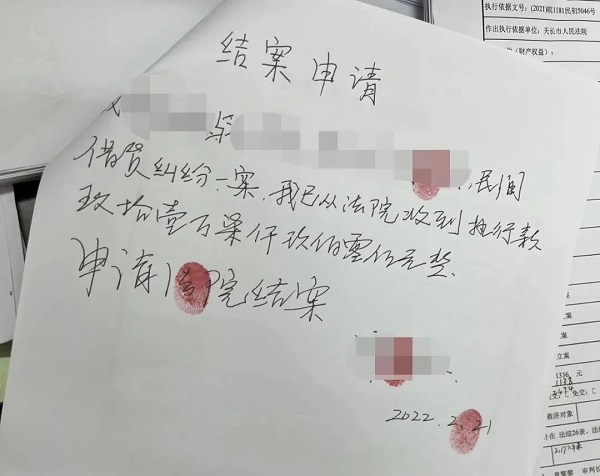 执行依据文号：(2021)皖1181民初5046号
作出执行依据单位：天长市人民法院
(财产权益)：
结案申请
与
，民间
借贷纠纷一案，我已从法院收到执行款
玖拾壹万柒仟玖佰零伍元整.
申请法院结案
2022.2.21
案
案
立案
1336 元
1138
免交：
救济对象